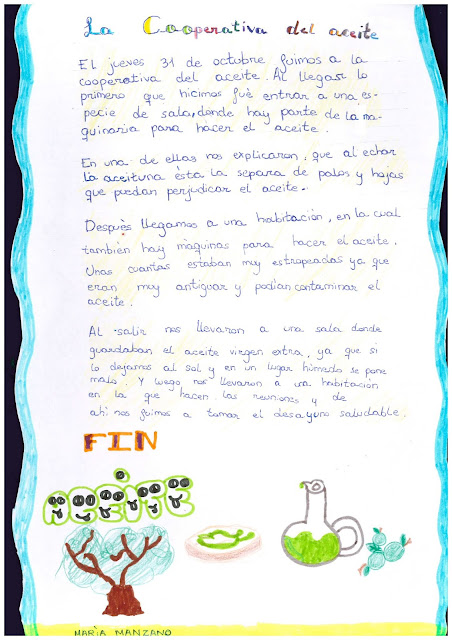 La Cooperativa del aceite
El jueves 31 de octubre fuimos a la
cooperativa del aceite. Al llegar lo
primero que hicimos fuè entrar a una es-
pecie de sala, donde hay parte de la ma-
quinaria para hacer el aceite.
En una de ellas nos explicaron, que al echar
la aceituna èsta la separa de palos y hojas
que puedan perjudicar el aceite.
Despuès llegamos a una habitaciòn, en la cual
tambien hay màquinas para hacer el aceite.
Unas cuantas estaban muy estropeadas ya que
eran muy antiguar y podìan contaminar el
aceite.
Al salir nos llevaron a una sala donde
guardaban el aceite virgen extra, ya que si
lo dejamos al sol y en un lugar hùmedo se pone
malo. Y luego nos llevaron a una habitaciòn
en la que hacen las reuniones y de
ahì nos fuimos a tomar el desayuno saludable.
FIN
ACEITE
MARÌA MANZANO